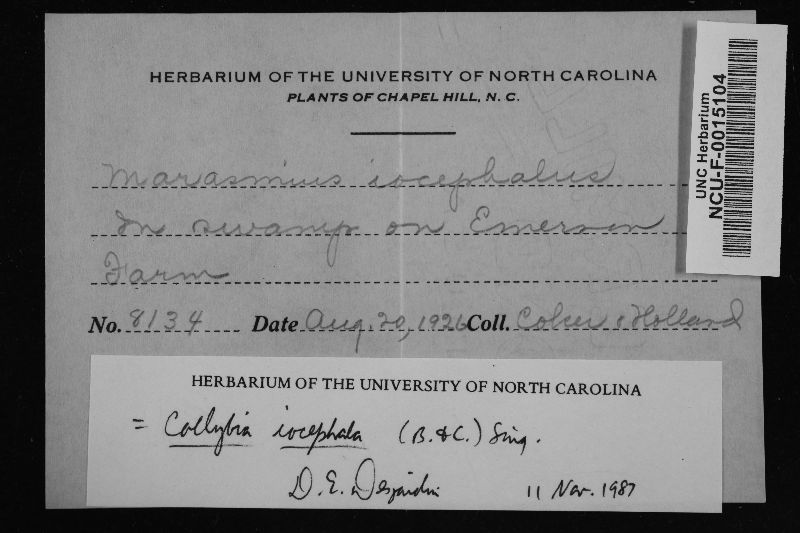 HERBARIUM OF THE UNIVERSITY OF NORTH CAROLINA
PLANTS OF CHAPEL HILL, N. C.
Marasmius iocephalus
In swamp on Emerson
Farm
No. 8134 Date Aug. 20, 1926 Coll. Coker & Holland
UNC Herbarium
NCU-F-0015104
HERBARIUM OF THE UNIVERSITY OF NORTH CAROLINA
= Collybia iocephala (B. & C.) Sing.
D. E. Desjardin 11 Nov. 1987